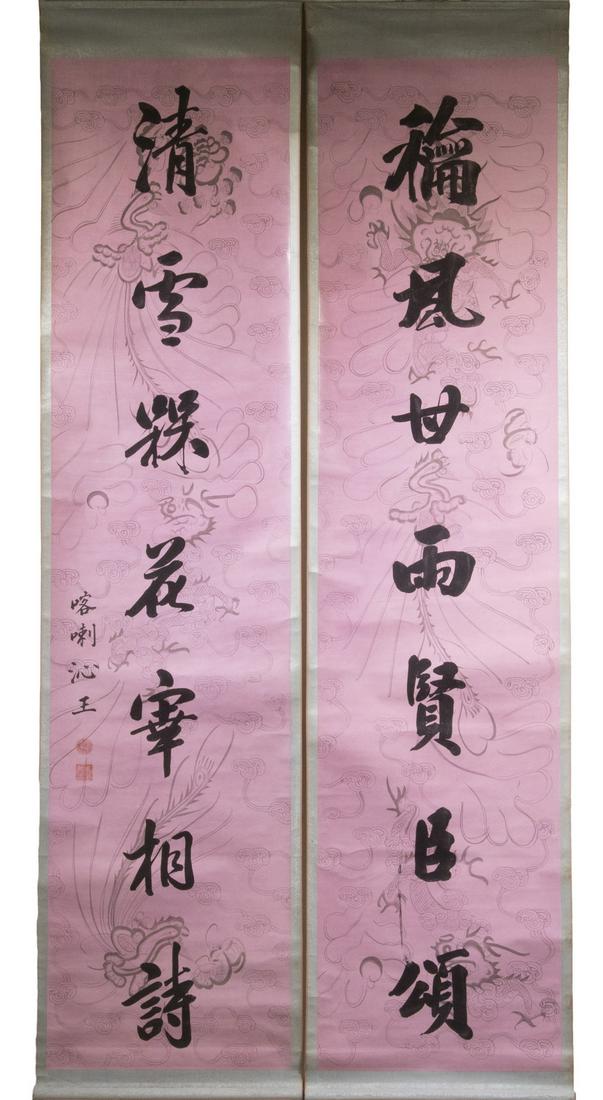 龢風甘雨賢臣頌
清雪槑花宰相詩
喀喇沁王